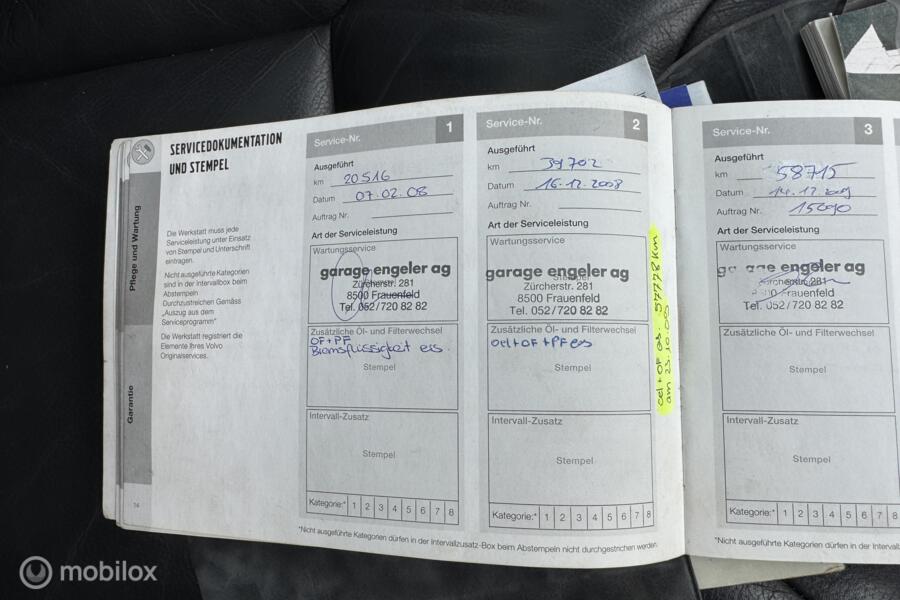 SERVICEDOKUMENTATION
UND STEMPEL
Pflege und Wartung
Garantie
Die Werkstatt muss jede
Serviceleistung unter Einsatz
von Stempel und Unterschrift
eintragen.
Nicht ausgeführte Kategorien
sind in der Intervallbox beim
Abstempeln
Durchzustreichen Gemäss
„Auszug aus dem
Serviceprogramm"
Die Werkstatt registriert die
Elemente Ihres Volvo
Originalservices.
14
Service-Nr. 1
Ausgeführt
km 20516
Datum 07.02.08
Auftrag Nr.
Art der Serviceleistung
Wartungsservice
garage engeler ag
Zürcherstr. 281
8500 Frauenfeld
Tel. 052/720 82 82
Zusätzliche Öl- und Filterwechsel
OF+PF
Bremsflüssigkeit ers.
Stempel
Intervall-Zusatz
Stempel
Kategorie:* 1 2 3 4 5 6 7 8
Service-Nr. 2
Ausgeführt
km 39702
Datum 16.12.2008
Auftrag Nr.
Art der Serviceleistung
Wartungsservice
garage engeler ag
Zürcherstr. 281
8500 Frauenfeld
Tel. 052/720 82 82
Zusätzliche Öl- und Filterwechsel
Oel+OF+PF ers
Stempel
Intervall-Zusatz
Stempel
Kategorie:* 1 2 3 4 5 6 7 8
*Nicht ausgeführte Kategorien dürfen in der Intervallzusatz-Box beim Abstempeln nicht durchgestrichen werden.
Service-Nr. 3
Ausgeführt
km 58715
Datum 14.12.2009
Auftrag Nr. 15090
Art der Serviceleistung
Wartungsservice
garage engeler ag
Zürcherstr. 281
8500 Frauenfeld
Tel. 052/720 82 82
Zusätzliche Öl- und Filterwechsel
Stempel
Intervall-Zusatz
Stempel
Kategorie:* 1 2 3 4 5 6 7 8
*Nicht ausgeführte Kategorien dürfen in der Intervallza
mobilox